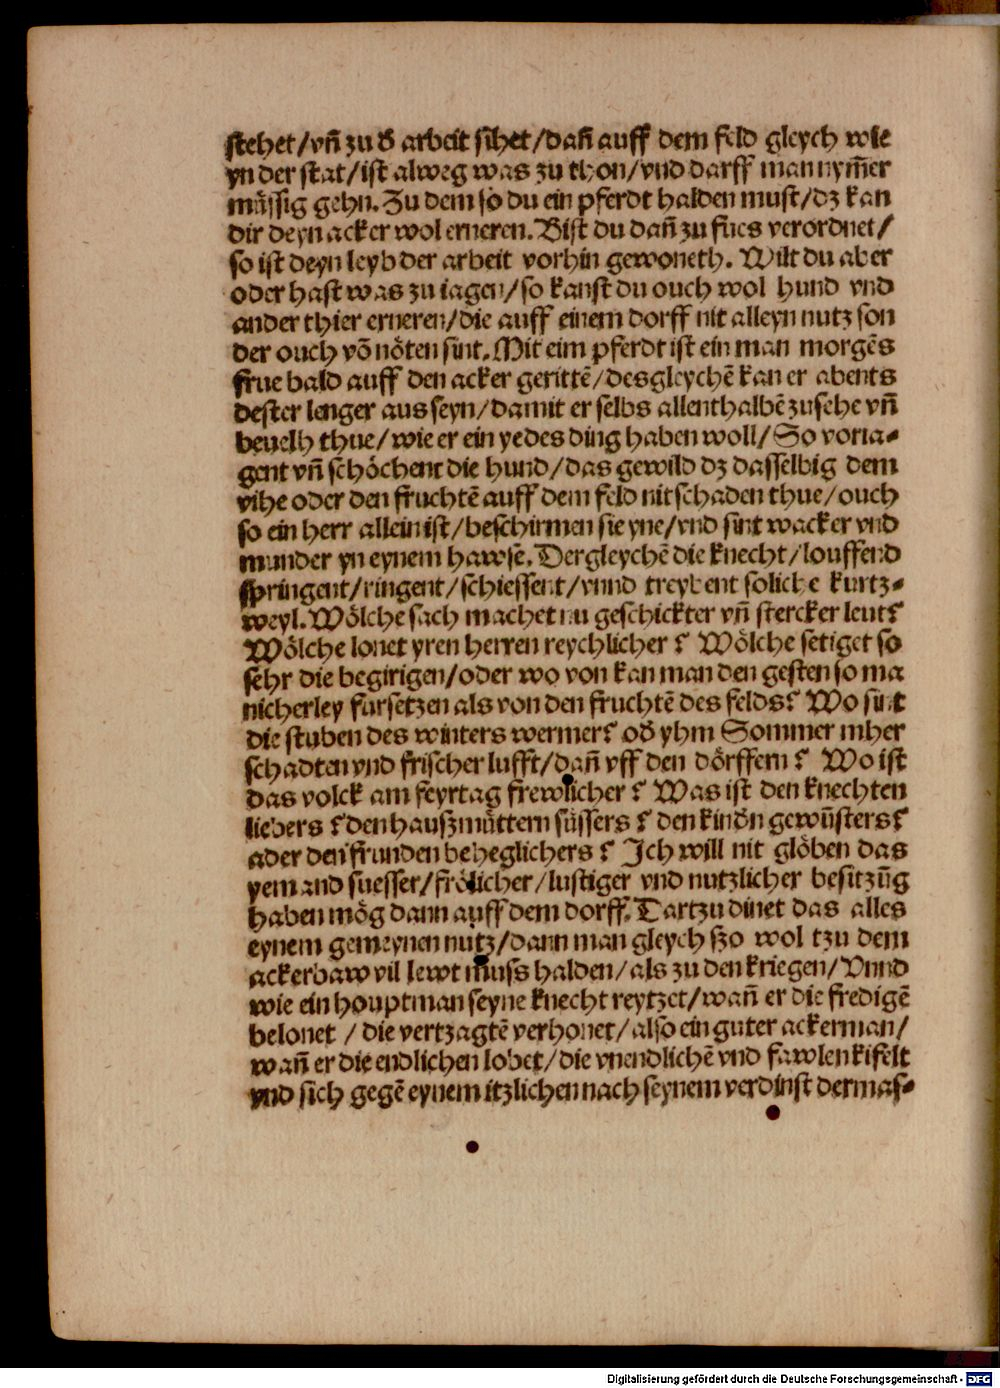 stehet/vñ zu d̕ arbeit sihet/dañ auff dem feld gleych wie
yn der stat/ist alweg was zu thon/vnd darff man nym̃er
mu̎ssig gehn. Zu dem so du ein pferdt halden must/dz kan
dir deyn acker wol erneren. Bist du dañ zu fues verordnet/
so ist deyn leyb der arbeit vorhin gewoneth. Wilt du aber
oder hast was zu iagen/so kanst du ouch wol hund vnd
ander thier erneren/die auff einem dorff nit alleyn nutz son
der ouch võ nöten sint. Mit eim pferdt ist ein man morgẽs
frue bald auff den acker gerittẽ/desgleychẽ kan er abents
dester lenger aus seyn/damit er selbs allenthalbẽ zusehe vñ
beuelh thue/wie er ein yedes ding haben woll/So voria⸗
gent vñ schöchent die hund/das gewild dz dasselbig dem
vihe oder den fruchtẽ auff dem feld nit schaden thue/ouch
so ein herr allein ist/beschirmen sie yne/vnd sint wacker vnd
munder yn eynem hawse. Dergleychẽ die knecht/louffend
springent/ringent/schiessent/vnnd treybent soliche kurtz⸗
weyl. Wölche sach machet nu geschickter vñ stercker leut?
Wölche lonet yren herren reychlicher? Wölche setiget so
sehr die begirigen/oder wo von kan man den gesten so ma
nicherley fursetzen als von den fruchtẽ des felds? Wo sint
die stuben des winters wermer? od̕ yhm Sommer mher
schadten vnd frischer lufft/dañ vff den dörffern? Wo ist
das volck am feyrtag frewlicher? Was ist den knechten
liebers? den hauszmüttern süssers? den kindn̄ gewünsters?
ader den frunden beheglichers? Ich will nit glöben das
yemand suesser/frölicher/lustiger vnd nutzlicher besitzũg
haben mög dann auff dem dorff. Dartzu dinet das alles
eynem gemeynen nutz/dann man gleych szo wol tzu dem
ackerbaw vil lewt muss halden/als zu den kriegen/Vnnd
wie ein houptman seyne knecht reytzet/wañ er die fredigẽ
belonet/die vertzagtẽ verhonet/also ein guter ackerman/
wañ er die endlichen lobet/die vnendlichẽ vnd fawlen kifelt
vnd sich gegẽ eynem itzlichen nach seynem verdinst dermas⸗
Digitalisierung gefördert durch die Deutsche Forschungsgemeinschaft - DFG